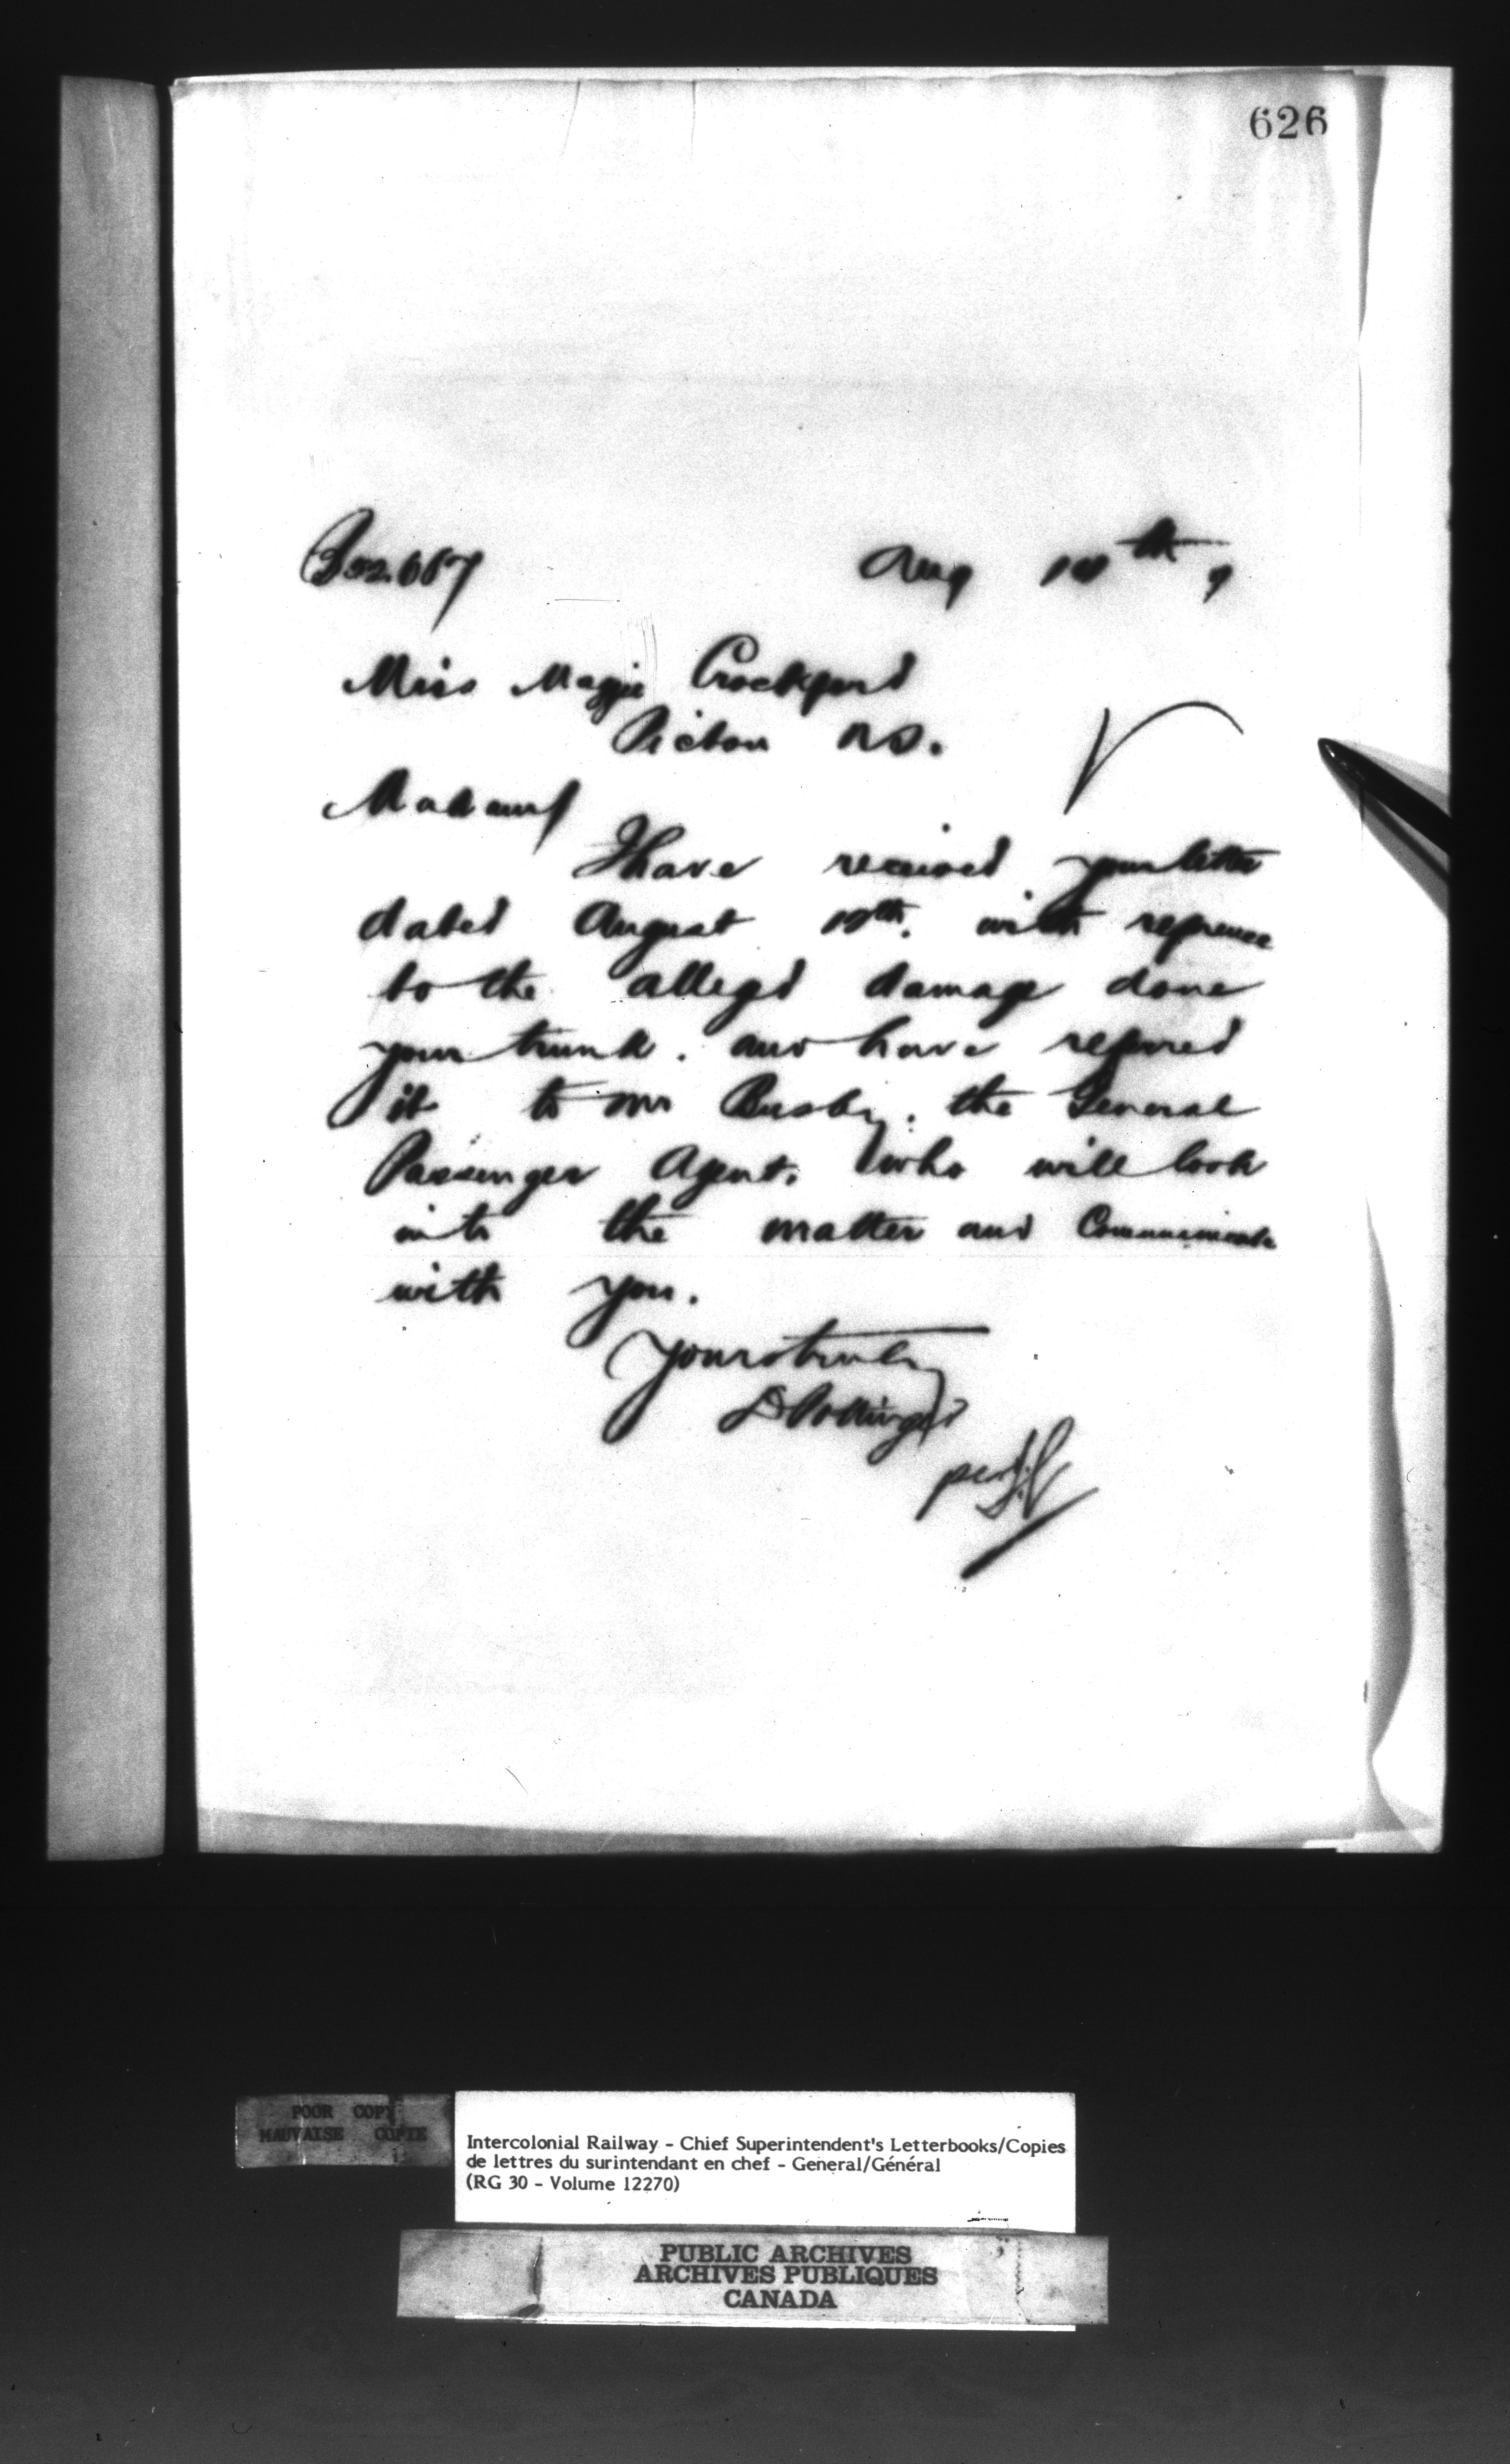 626
Aug 10th 9
Miss Maggie Crockford
Pictou N.S.
Madam
I have received your letter
dated August 10th. with reference
to the alleged damage done
your trunk. and have referred
it to Mr Busby. the General
Passenger Agent. who will look
into the matter and Communicate
with you.
Yours truly
D Pottinger
per
POOR COPY
MAUVAISE COPIE
Intercolonial Railway - Chief Superintendent's Letterbooks/Copies
de lettres du surintendant en chef - General/Général
(RG 30 - Volume 12270)
PUBLIC ARCHIVES
ARCHIVES PUBLIQUES
CANADA